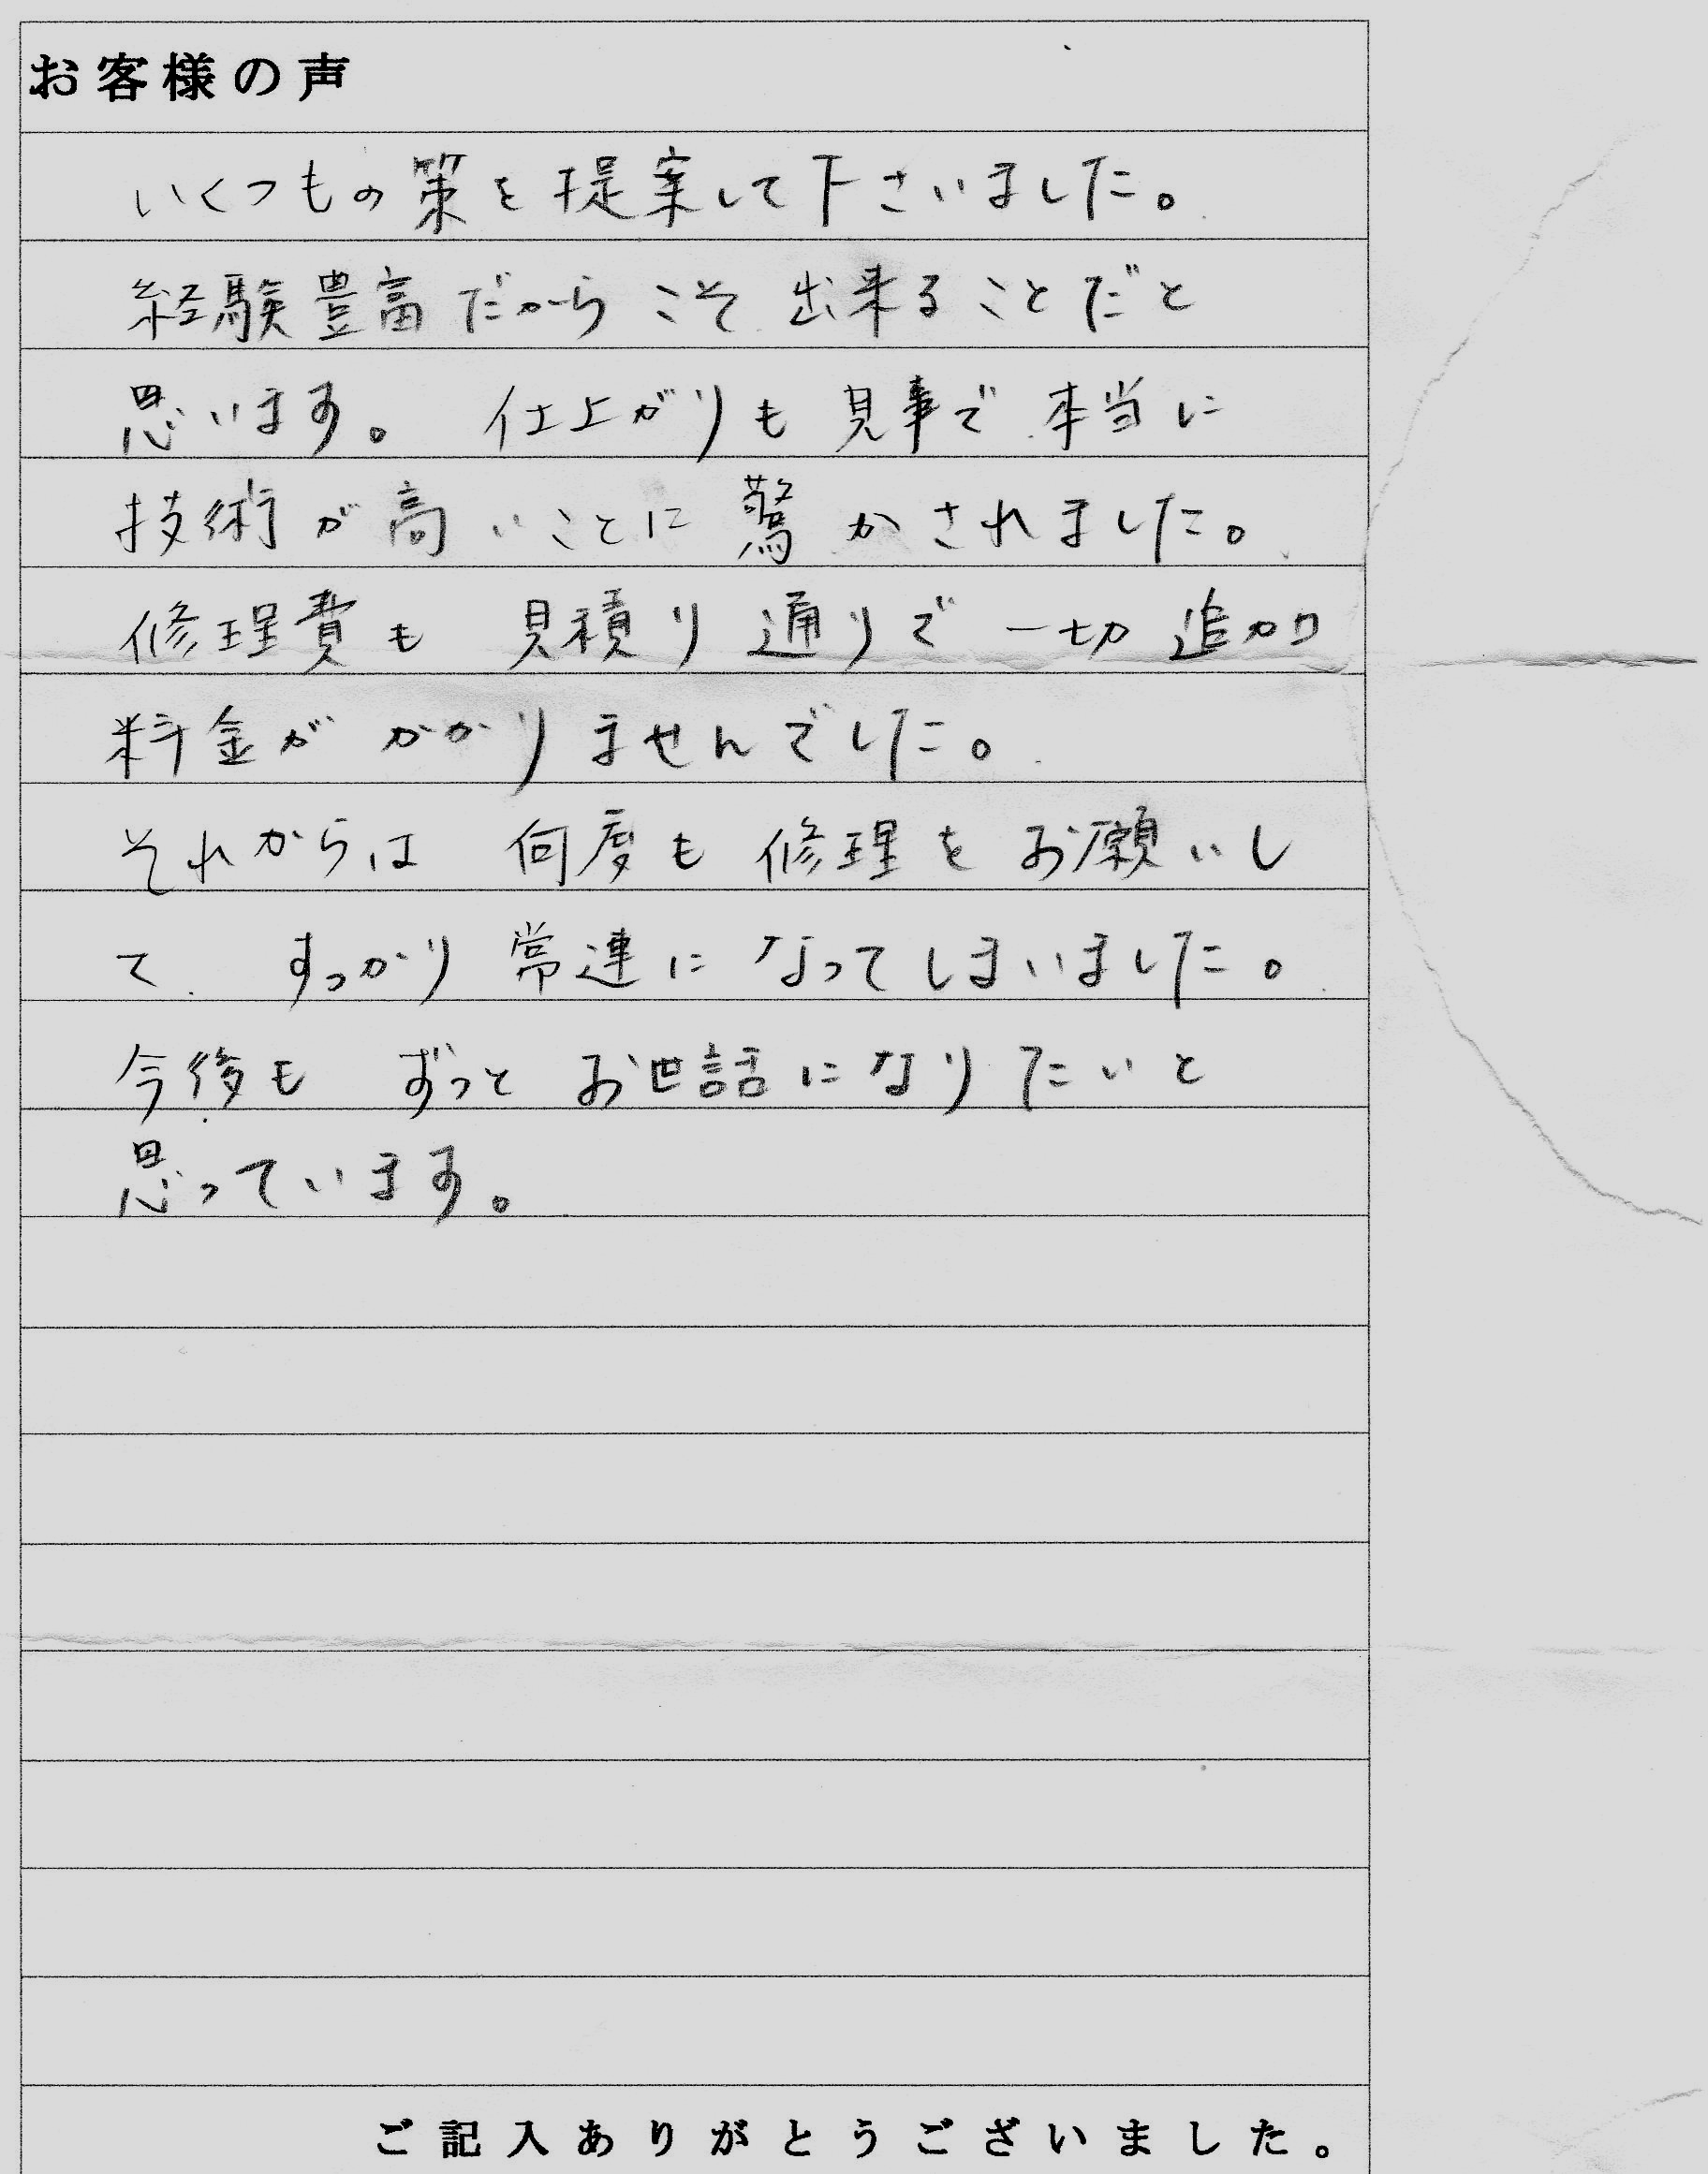 お客様の声
いくつもの策を提案して下さいました。
経験豊富だからこそ出来ることだと
思います。 仕上がりも見事で本当に
技術が高いことに驚かされました。
修理費も 見積り通りで 一切 追加
料金が かかりませんでした。
それからは 何度も修理をお願いし
て すっかり常連になってしまいました。
今後も ずっとお世話になりたいと
思っています。
ご記入ありがとうございました。